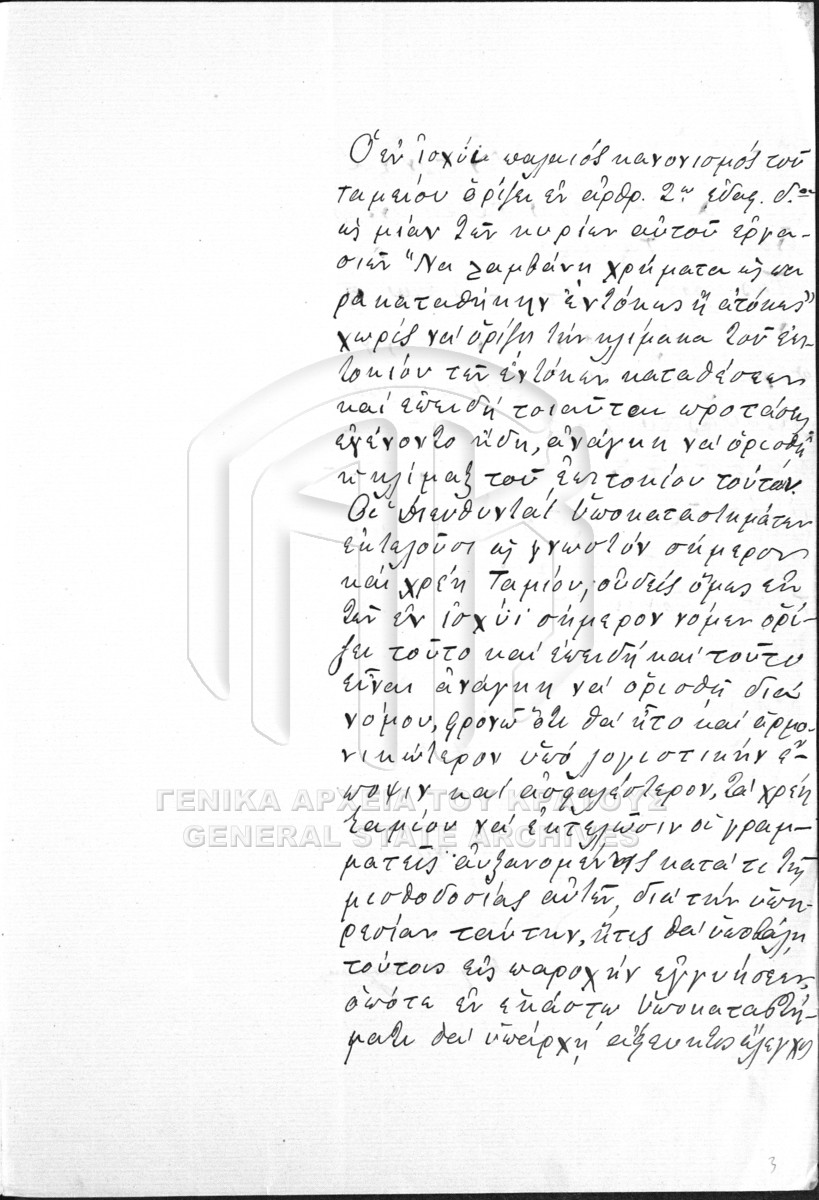 Ὁ ἐν ἰσχύϊ παλαιός κανονισμός τοῦ
ταμείου ὁρίζει ἐν ἄρθρ. 2ῳ ἐδαφ. δ.ον
ὡς μίαν τῶν κυρίων αὐτοῦ ἐργα-
σιῶν "Να λαμβάνῃ χρήματα ὡς πα
ρακαταθήκην ἐντόκως ἤ ἀτόκως"
χωρίς νά ὁρίζῃ τήν κλίμακα τοῦ ἐπι-
τοκίου τῶν ἐντόκων καταθέσεων
καί ἐπειδή τοιαῦται προτάσεις
ἐγένοντο ἤδη, ἀνάγκη νά ὁρισθῇ
ἡ κλίμαξ τοῦ ἐπιτοκίου τούτου.
Οἱ Διευθυνταί Ὑποκαταστημάτων
ἐκτελοῦσι ὡς γνωστόν σήμερον
καί χρέη Ταμίου, οὐδείς ὅμως ἐκ
τῶν ἐν ἰσχύϊ σήμερον νόμων ὁρί-
ζει τοῦτο καί ἐπειδή καί τοῦτο
εἶναι ἀνάγκη νά ὁρισθῇ διά
νόμου, φρονῶ ὅτι θά ἦτο καί ἁρμο-
νικώτερον ὑπό λογιστικήν ἔ-
ποψιν καί ἀσφαλέστερον, τά χρέη
ταμίου νά ἐκτελῶσιν οἱ γραμ-
ματεῖς αὐξανομένης κατά τι τῆς
μισθοδοσίας αὐτῶν, διά τήν ὑπη-
ρεσίαν ταύτην, ἥτις θά ὑποβάλῃ
τούτους εἰς παροχήν ἐγγυήσεων,
ὁπότε ἐν ἑκάστῳ Ὑποκαταστή-
ματι θά ὑπάρχῃ ἀπόλυτος ἔλεγχος
3
ΓΕΝΙΚΑ ΑΡΧΕΙΑ ΤΟΥ ΚΡΑΤΟΥΣ
GENERAL STATE ARCHIVES